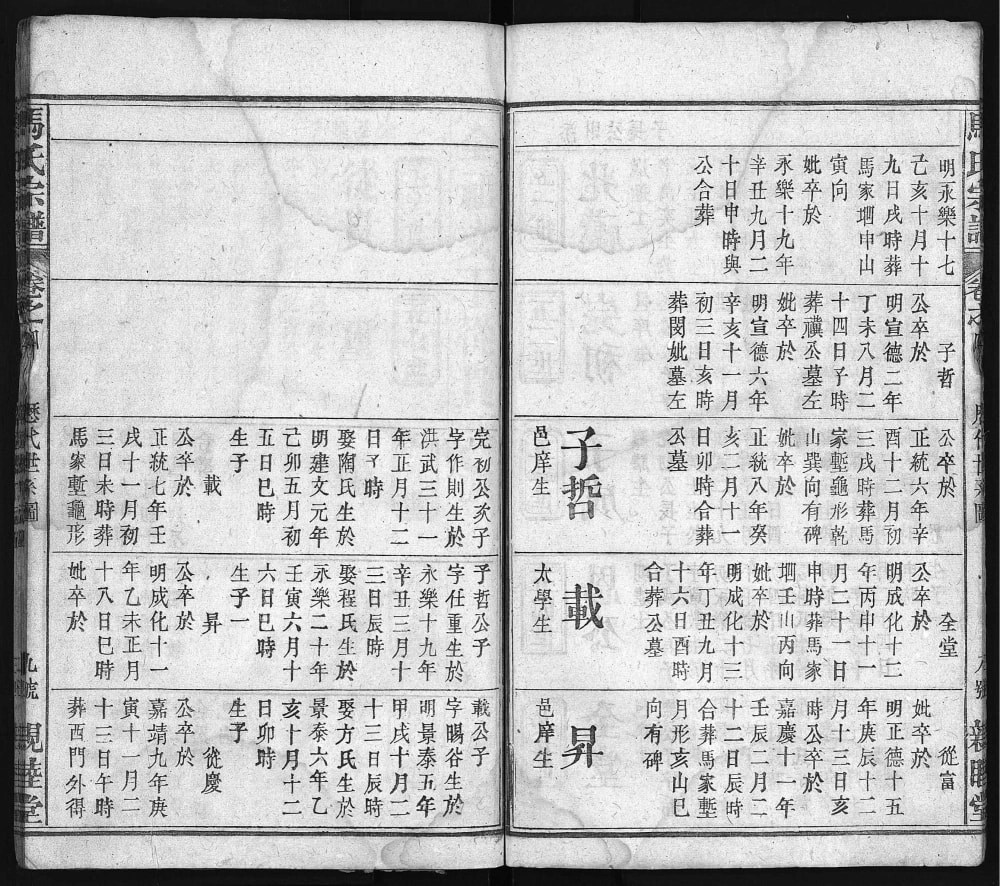 明永樂十七
己亥十月十
九日戌時葬
馬家堋申山
寅向
妣卒於
永樂十九年
辛丑九月二
十日申時與
公合葬
子哲
公卒於
明宣德二年
丁未八月二
十四日子時
葬禩公墓左
妣卒於
明宣德六年
辛亥十一月
初三日亥時
葬閔妣墓左
公卒於
正統六年辛
酉十二月初
三戌時葬馬
家塹龜形乾
山巽向有碑
妣卒於
正統八年癸
亥二月十一
日卯時合葬
公墓
子哲
邑庠生
全堂
公卒於
明成化十二
年丙申十一
月二十一日
申時葬馬家
堋壬山丙向
妣卒於
明成化十三
年丁丑九月
十六日酉時
合葬公墓
載
太學生
從富
妣卒於
明正德十五
年庚辰十二
月十三日亥
時公卒於
嘉慶十一年
壬辰二月二
十二日辰時
合葬馬家塹
月形亥山巳
向有碑
昇
邑庠生
馬氏宗譜
卷之四
歷代世系圖
九號
親睦堂
完初公次子
字作則生於
洪武三十一
年正月十二
日子時
娶陶氏生於
明建文元年
己卯五月初
五日巳時
生子一
載
公卒於
正統七年壬
戌十一月初
三日未時葬
馬家塹龜形
子哲公子
字仕重生於
永樂十九年
辛丑三月十
三日辰時
娶程氏生於
永樂二十年
壬寅六月十
六日巳時
生子一
昇
公卒於
明成化十一
年乙未正月
十八日巳時
妣卒於
載公子
字賜谷生於
明景泰五年
甲戌十月二
十三日辰時
娶方氏生於
景泰六年乙
亥十月十二
日卯時
生子一
從慶
公卒於
嘉靖九年庚
寅十一月二
十三日午時
葬西門外得